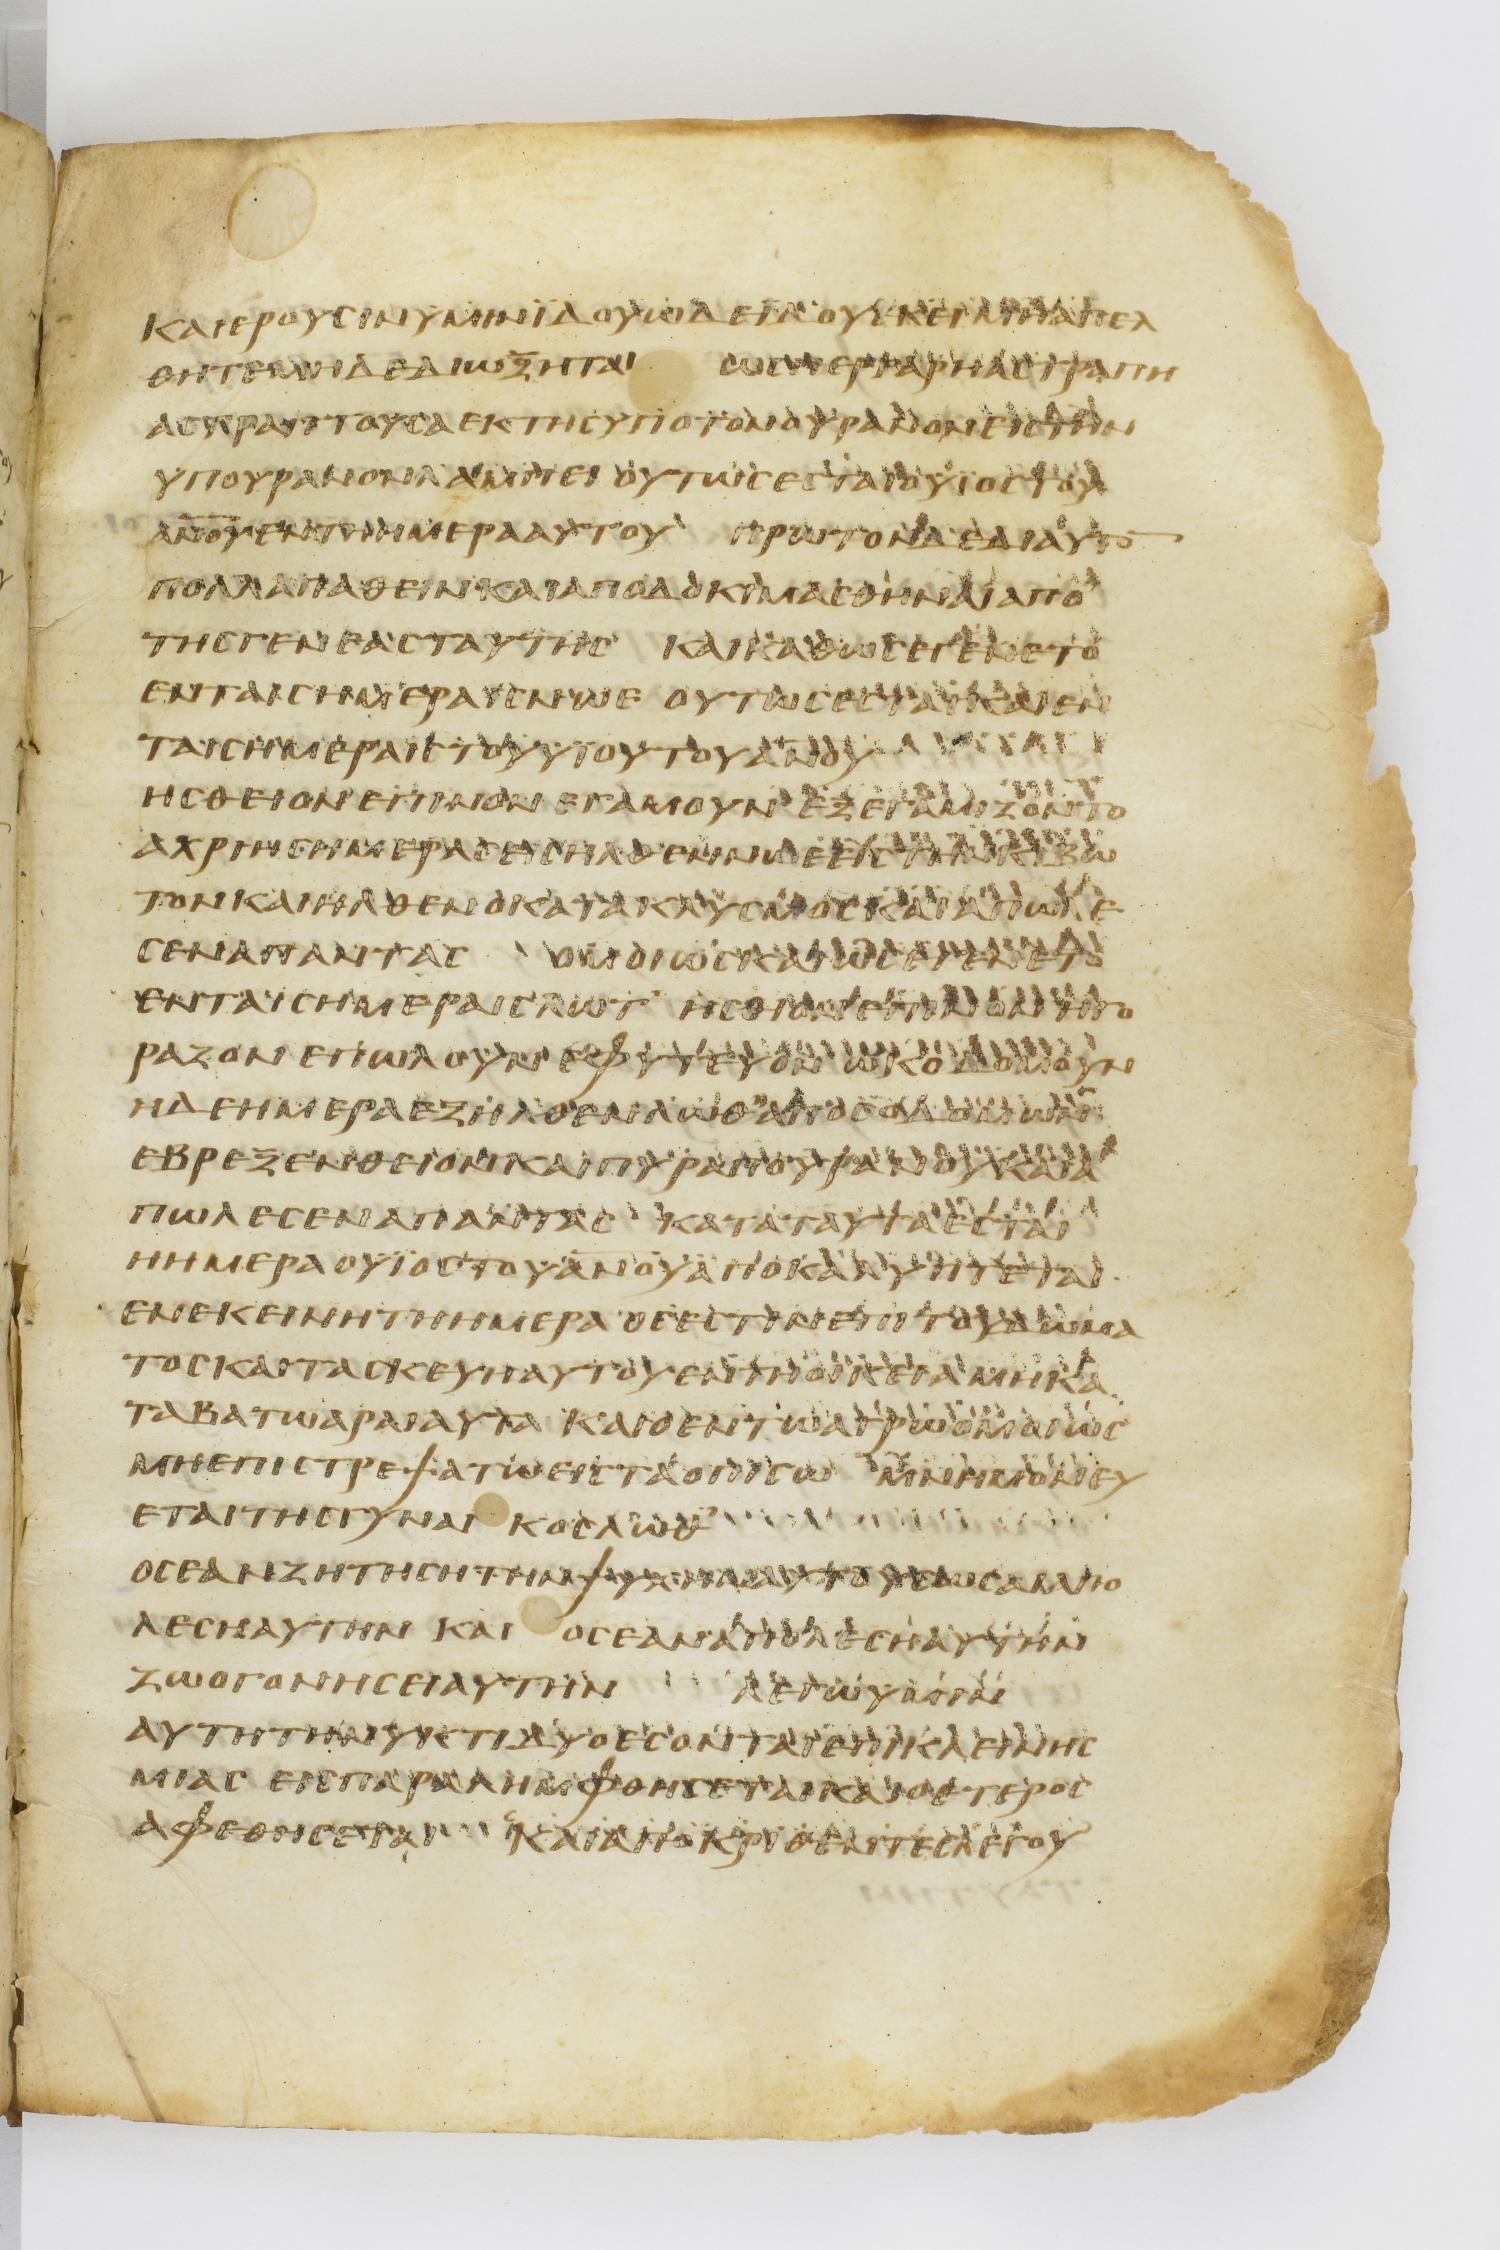 ΚΑΙΕΡΟΥϹΙΝΥΜΙΝΪΔΟΥΩΔΕΙΔΟΥΕΚΕΙΜΗΑΠΕΛ
ΘΗΤΕΜΗΔΕΔΙΩΞΗΤΑΙ ΩϹΠΕΡΓΑΡΗΑϹΤΡΑΠΗ
ΑϹΤΡΑΠΤΟΥϹΑΕΚΤΗϹΥΠΟΤΟΝΟΥΡΑΝΟΝΕΙϹΤΗΝ
ΥΠΟΥΡΑΝΟΝΛΑΜΠΕΙ ΟΥΤΩϹΕϹΤΑΙΟΥΪΟϹΤΟΥ
ΑΝΟΥΕΝΤΗΗΜΕΡΑΑΥΤΟΥ ΠΡΩΤΟΝΔΕΔΙΑΥΤΟ
ΠΟΛΛΑΠΑΘΕΙΝΚΑΙΑΠΟΔΟΚΙΜΑϹΘΗΝΑΙΑΠΟ
ΤΗϹΓΕΝΕΑϹΤΑΥΤΗϹ ΚΑΙΚΑΘΩϹΕΓΕΝΕΤΟ
ΕΝΤΑΙϹΗΜΕΡΑΙϹΝΩΕ ΟΥΤΩϹΕϹΤΑΙΚΑΙΕΝ
ΤΑΙϹΗΜΕΡΑΙϹΤΟΥΥΙΟΥΤΟΥΑΝΟΥ
ΗϹΘΕΙΟΝΕΠΙΝΟΝΕΓΑΜΟΥΝΕΞΕΓΑΜΙΖΟΝΤΟ
ΑΧΡΙΗϹΗΜΕΡΑϹΕΙϹΗΛΘΕΝΝΩΕΕΙϹΤΗΝΚΙΒΩ
ΤΟΝΚΑΙΗΛΘΕΝΟΚΑΤΑΚΛΥϹΜΟϹΚΑΙΑΠΩΛΕ
ϹΕΝΑΠΑΝΤΑϹ ΟΜΟΙΩϹΚΑΙΩϹΕΓΕΝΕΤΟ
ΕΝΤΑΙϹΗΜΕΡΑΙϹΛΩΤ ΗϹΘΙΟΝΕΠΙΝΟΝΗΓΟ
ΡΑΖΟΝΕΠΩΛΟΥΝΕΦΥΤΕΥΟΝΩΚΟΔΟΜΟΥΝ
ΗΔΕΗΜΕΡΑΕΞΗΛΘΕΝΛΩΘΑΠΟϹΟΔΟΜΩΝ
ΕΒΡΕΞΕΝΘΕΙΟΝΚΑΙΠΥΡΑΠΟΥΡΑΝΟΥΚΑΙΑ
ΠΩΛΕϹΕΝΑΠΑΝΤΑϹ ΚΑΤΑΤΑΥΤΑΕϹΤΑΙ
ΗΗΜΕΡΑΟΥΪΟϹΤΟΥΑΝΟΥΑΠΟΚΑΛΥΠΤΕΤΑΙ
ΕΝΕΚΕΙΝΗΤΗΗΜΕΡΑΟϹΕϹΤΙΝΕΠΙΤΟΥΔΩΜΑ
ΤΟϹΚΑΙΤΑϹΚΕΥΗΑΥΤΟΥΕΝΤΗΟΙΚΕΙΑΜΗΚΑ
ΤΑΒΑΤΩΑΡΑΙΑΥΤΑ ΚΑΙΟΕΝΤΩΑΓΡΩΟΜΟΙΩϹ
ΜΗΕΠΙϹΤΡΕΨΑΤΩΕΙϹΤΑΟΠΙϹΩ ΜΝΗΜΟΝΕΥ
ΕΤΑΙΤΗϹΓΥΝΑΙΚΟϹΛΩΘ
ΟϹΕΑΝΖΗΤΗϹΗΤΗΝΨΥΧΗΝΑΥΤΟΥϹΩϹΑΙΑΠΟ
ΛΕϹΗΑΥΤΗΝ ΚΑΙ ΟϹΕΑΝΑΠΟΛΕϹΗΑΥΤΗΝ
ΖΩΟΓΟΝΗϹΕΙΑΥΤΗΝ ΛΕΓΩΥΜΙΝ
ΑΥΤΗΤΗΝΥΚΤΙΔΥΟΕϹΟΝΤΑΙΕΠΙΚΛΕΙΝΗϹ
ΜΙΑϹ ΕΙϹΠΑΡΑΛΗΜΦΘΗϹΕΤΑΙΚΑΙΟΕΤΕΡΟϹ
ΑΦΕΘΗϹΕΤΑΙ ΚΑΙΑΠΟΚΡΙΘΕΝΤΕϹΛΕΓΟΥ